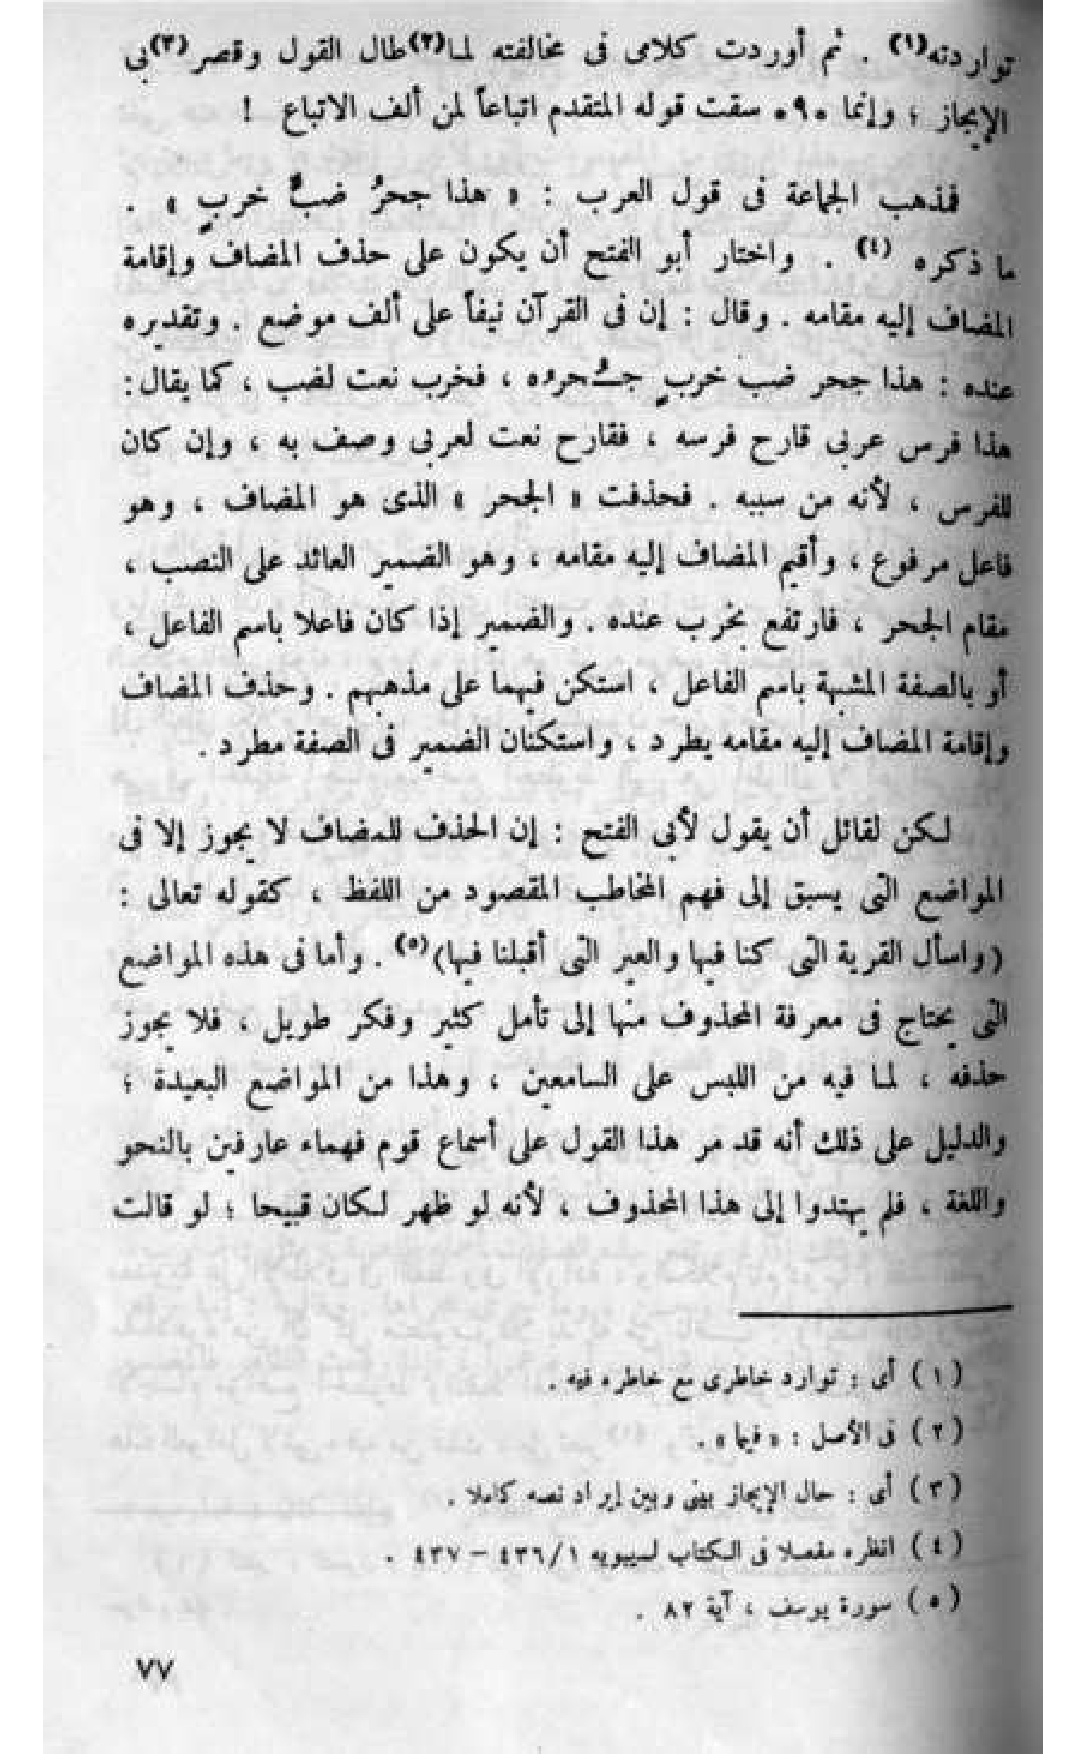 تواردته(١) . ثم أوردت كلامى فى مخالفته لما(٢) طال القول وقصر(٣) بى
الإيجاز ؛ وإنما ٠٩٠ سقت قوله المتقدم اتباعاً لمن ألف الاتباع !
فذهب الجماعة فى قول العرب : « هذا جحرُ ضبٍّ خربٍ » .
ما ذكره (٤) . واختار أبو الفتح أن يكون على حذف المضاف وإقامة
المضاف إليه مقامه . وقال : إن فى القرآن نيفاً على ألف موضع . وتقديره
عنده : هذا جحر ضب خربٍ جُحره ، فخرب نعت لضب ، كما يقال :
هذا فرس عربى قارح فرسه ، فقارح نعت لعربى وصف به ، وإن كان
للفرس ، لأنه من سببه . فحذفت « الجحر » الذى هو المضاف ، وهو
فاعل مرفوع ، وأقيم المضاف إليه مقامه ، وهو الضمير العائد على النصب ،
مقام الجحر ، فارتفع بخرب عنده . والضمير إذا كان فاعلا باسم الفاعل ،
أو بالصفة المشبهة باسم الفاعل ، استكن فيهما على مذهبهم . وحذف المضاف
وإقامة المضاف إليه مقامه يطرد ، واستكنان الضمير فى الصفة مطرد .
لكن لقائل أن يقول لأبى الفتح : إن الحذف للمضاف لا يجوز إلا فى
المواضع التى يسبق إلى فهم المخاطب المقصود من اللفظ ، كقوله تعالى :
(واسأل القرية التى كنا فيها والعير التى أقبلنا فيها)(٥) . وأما فى هذه المواضع
التى يحتاج فى معرفة المحذوف منها إلى تأمل كثير وفكر طويل ، فلا يجوز
حذفه ، لما فيه من اللبس على السامعين ، وهذا من المواضع البعيدة ؛
والدليل على ذلك أنه قد مر هذا القول على أسماع قوم فهماء عارفين بالنحو
واللغة ، فلم يهتدوا إلى هذا المحذوف ، لأنه لو ظهر لكان قبيحا ؛ لو قالت
(١) أى : توارد خاطرى مع خاطره فيه .
(٢) فى الأصل : « فيما » .
(٣) أى : حال الإيجاز بينى وبين إيراد نصه كاملا .
(٤) انظره مفصلا فى الكتاب لسيبويه ١/٤٣٦ – ٤٣٧ .
(٥) سورة يوسف ، آية ٨٢ .
٧٧